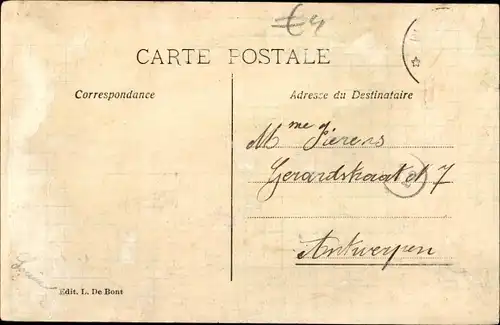 €4
CARTE POSTALE
Correspondance
Adresse du Destinataire
Mme Pierens
Gerardstraat No 7
2
Antwerpen
Edit. L. De Bont